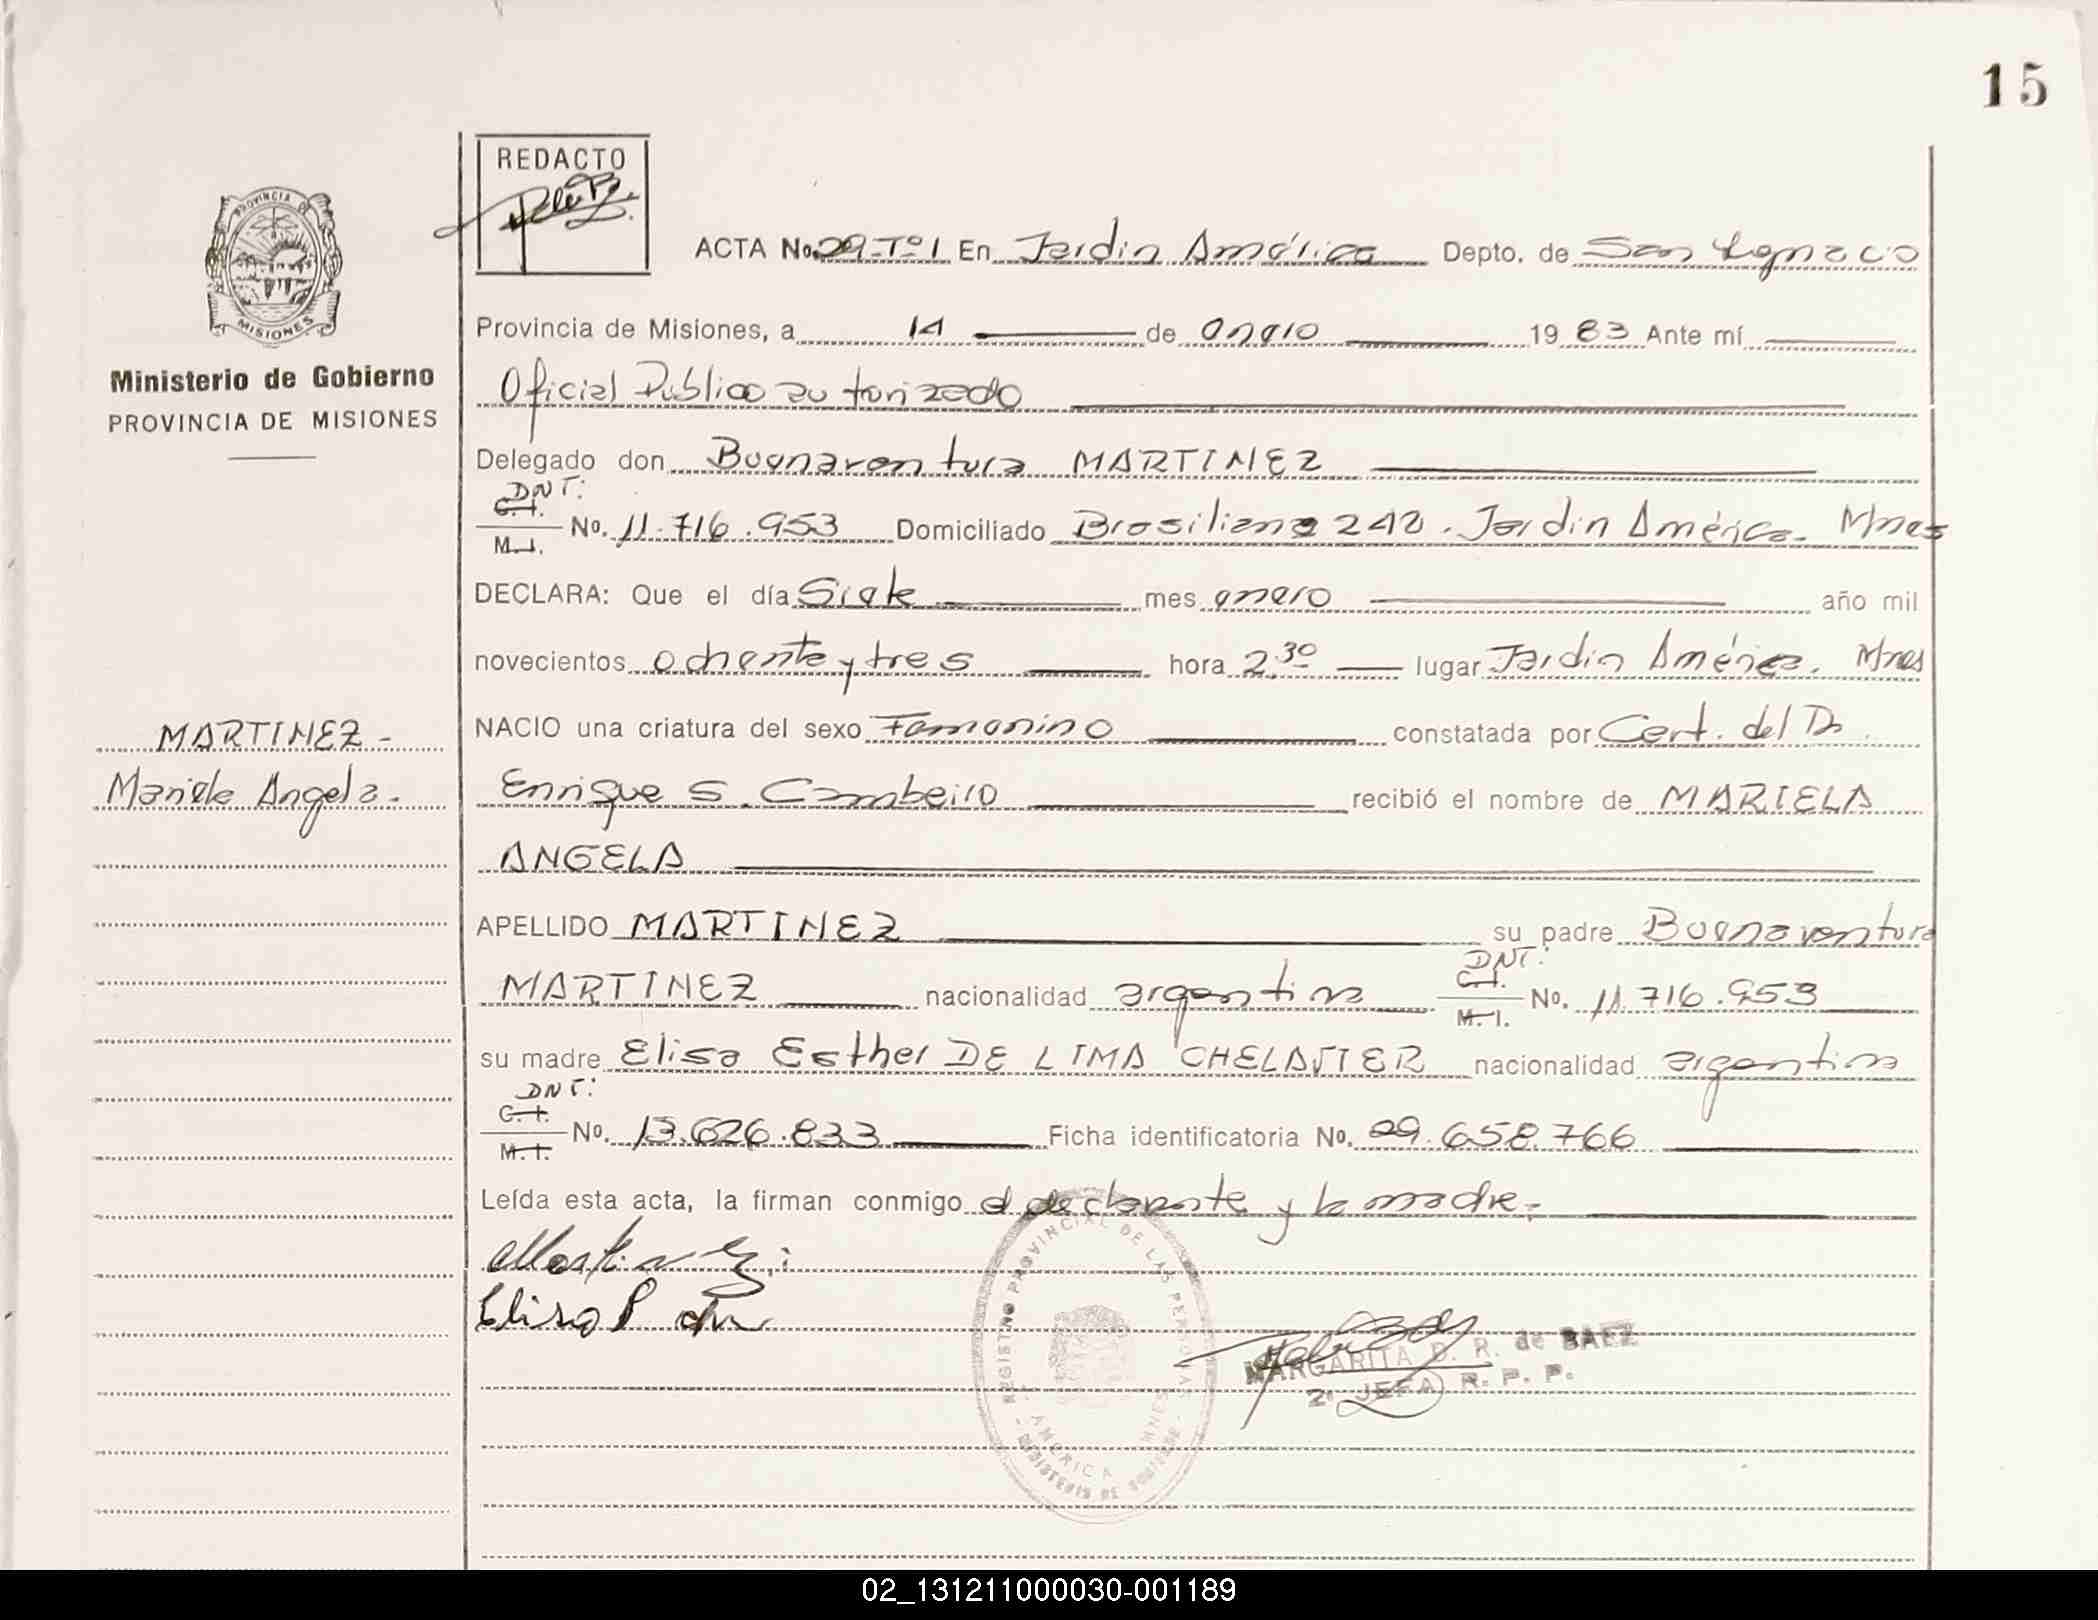 15
REDACTO
PROVINCIA DE
MISIONES
Ministerio de Gobierno
PROVINCIA DE MISIONES
ACTA No. 29-Tº1 En Jardin América Depto. de San Ignacio
Provincia de Misiones, a 14 de enero 1983 Ante mí
Oficial Publico autorizado
Delegado don Buenaventura MARTINEZ
DNI:
C.I.
M.I. No. 11.716.953 Domiciliado Brasiliana 242. Jardin América. Mnes
DECLARA: Que el día Siete mes enero año mil
novecientos ochenta y tres hora 2.30 lugar Jardin América. Mnes
NACIO una criatura del sexo Femenino constatada por Cert. del Dr.
Enrique S. Cambeiro recibió el nombre de MARIELA
ANGELA
MARTINEZ-
Mariela Angela.
APELLIDO MARTINEZ su padre Buenaventura
MARTINEZ nacionalidad argentina DNI: C.I. M.I. No. 11.716.953
su madre Elisa Esther DE LIMA CHELASTER nacionalidad argentina
DNI:
C.I.
M.I. No. 13.626.833 Ficha identificatoria No. 29.658.766
Leída esta acta, la firman conmigo el declarante y la madre.-
Martinez
Elisa
REGISTRO PROVINCIAL DE LAS PERSONAS
AMERICA MNES
MARGARITA D. R. de BAEZ
2a JEFA R. P. P.
02_131211000030-001189